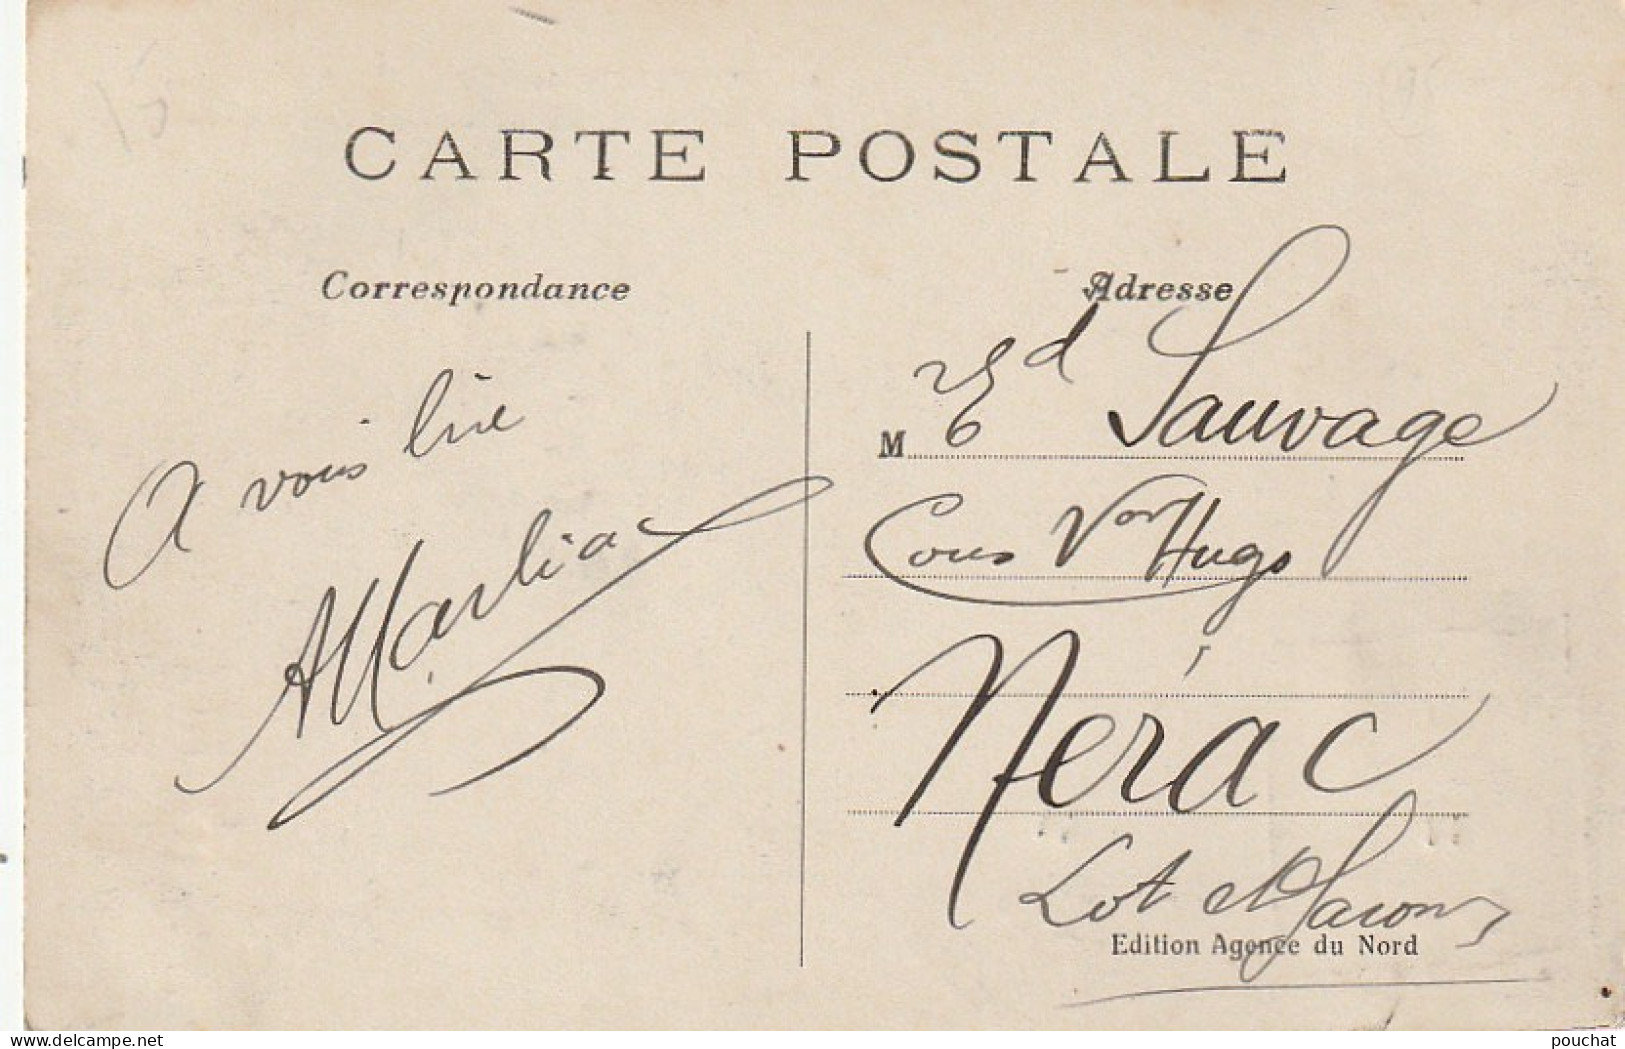 CARTE POSTALE
Correspondance
A vous lire
AMarliac
Adresse
M Ed Sauvage
Cours Vor Hugo
Nérac
Lot et Garonne
Edition Agence du Nord
www.delcampe.net
pouchat